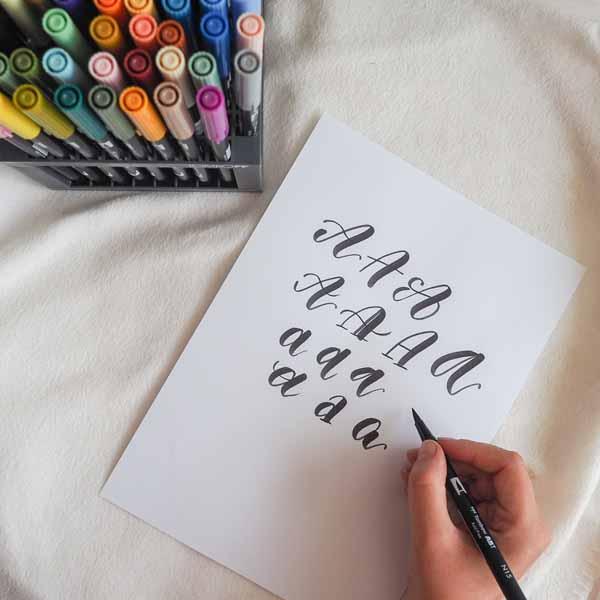 A A A
A A A A
a a a
a a a
Tombow ABT
N15